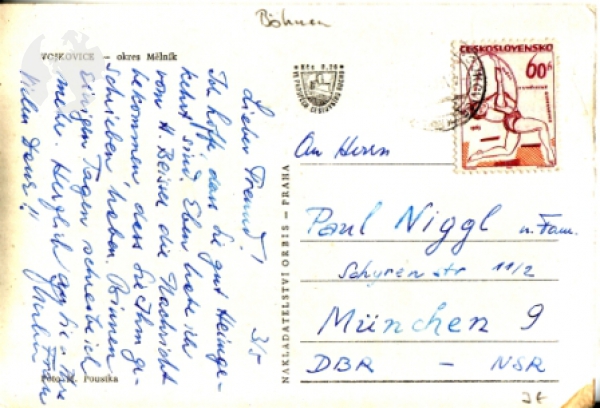 Böhmen
VOJKOVICE — okres Mělník
Lieber Freund! 3/5
Ich hoffe dass Sie gut Heimge-
kehrt sind. Eben habe ich
von H. die Nachricht
bekommen, dass Sie Ihm ge-
schrieben haben. Binnen
einigen Tagen schreibe ich
mehr. Herzlich
Vielen Dank!!
Foto M. Poustka
NAKLADATELSTVÍ ORBIS — PRAHA
Kčs 0,20
ČESKOSLOVENSKO
60h
An Herrn
Paul Niggl u. Fam.
Schyrenstr 11/2
München 9
DBR - NSR